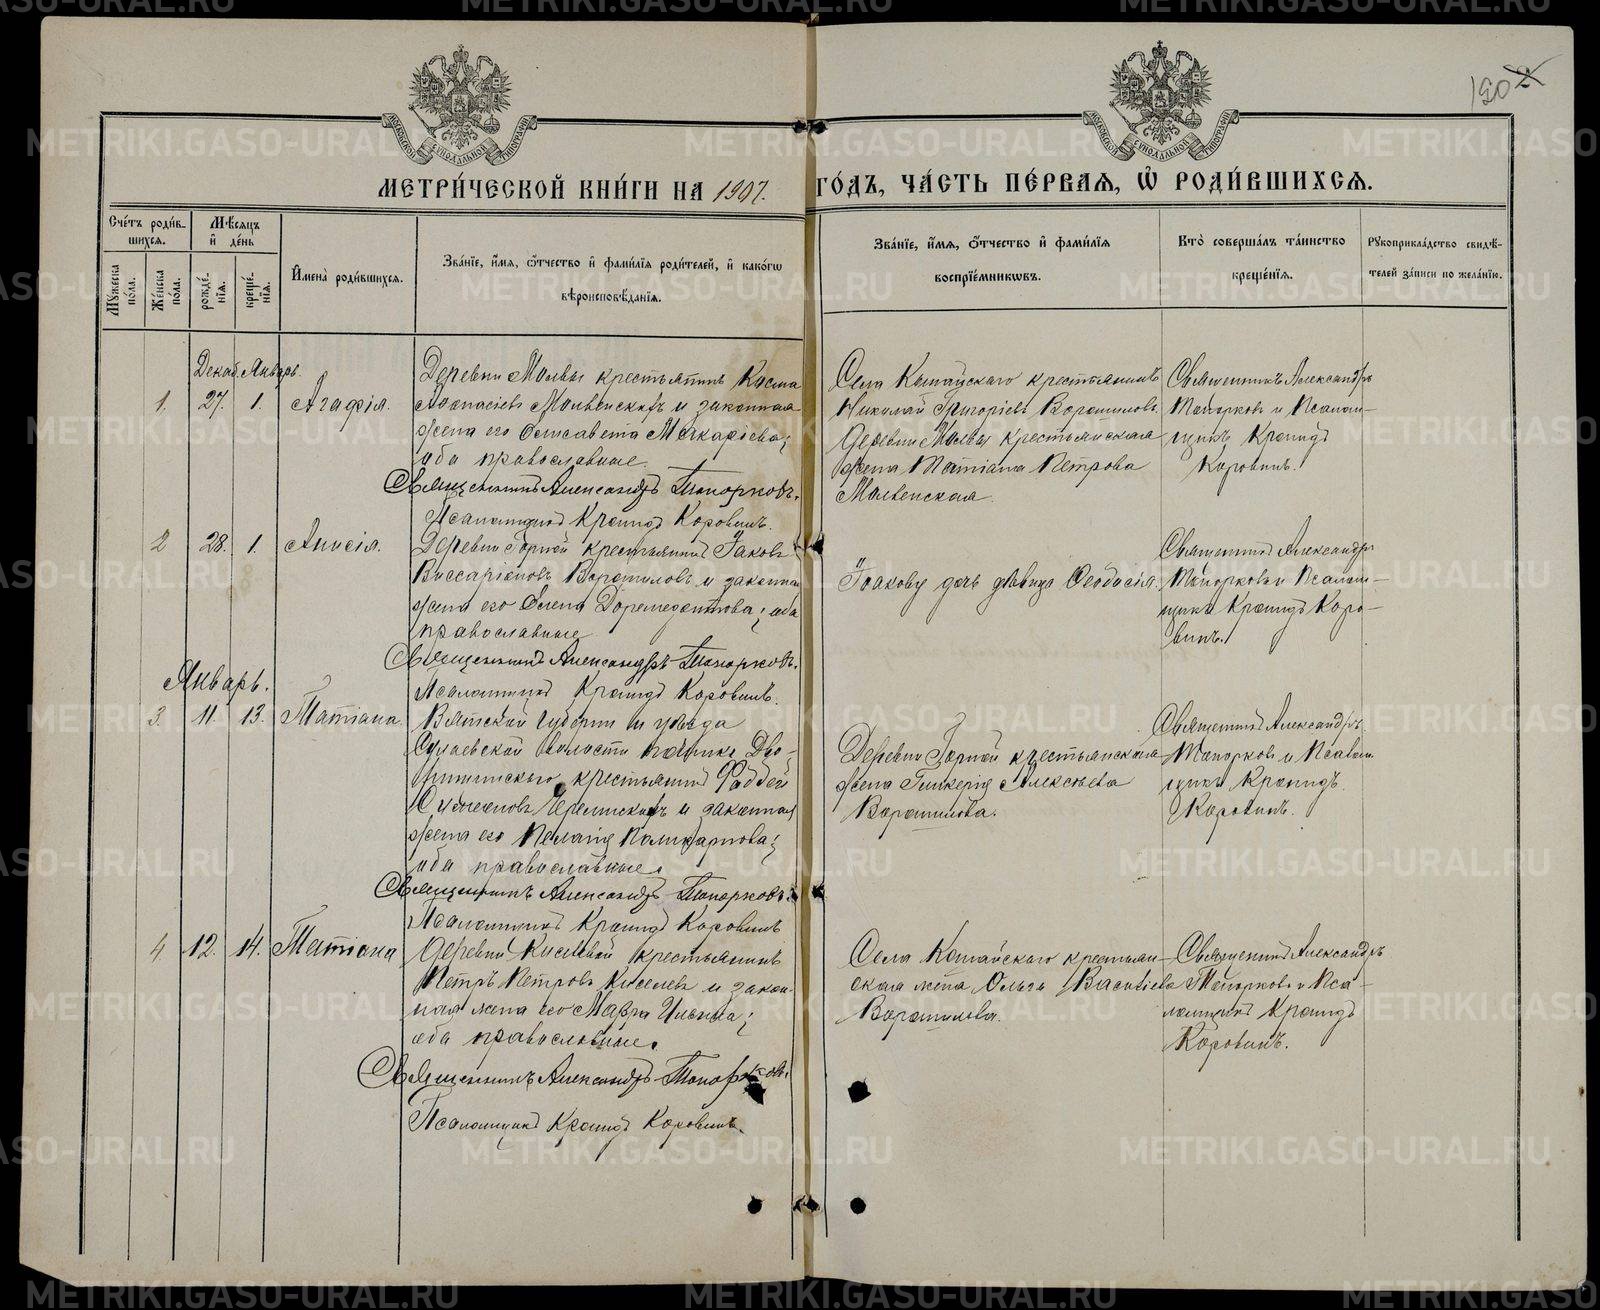 1902
МОСКОВСКОЙ СУНОДАЛЬНОЙ ТИПОГРАФІИ
МОСКОВСКОЙ СУНОДАЛЬНОЙ ТИПОГРАФІИ
МЕТРИ́ЧЕСКОЙ КНИ́ГИ НА 1907. ГО́ДЪ, ЧА́СТЬ ПЕ́РВАѦ, Ѡ҆ РОДИ́ВШИХСѦ.
Сче́тъ роди́вшихсѧ.
Мꙋ́жеска по́ла.
Же́нска по́ла.
Мѣ́сѧцъ и҆ де́нь
рожде́нїѧ.
креще́нїѧ.
И҆мена̀ роди́вшихсѧ.
Зва́нїе, и҆́мѧ, ѻ҆́тчество и҆ фами́лїѧ роди́телей, и҆ како́гѡ
вѣроисповѣ́данїѧ.
Зва́нїе, и҆́мѧ, ѻ҆́тчество и҆ фами́лїѧ
воспрїе́мникѡвъ.
Кто̀ соверша́лъ та́инство
креще́нїѧ.
Рꙋкоприкла́дство свидѣ́телей за́писи по жела́нїю.
Декаб. Январь.
1. 27. 1. Агафія.
Деревни Мольвы крестьянинъ Косма
Афонасіевъ Мольвенскихъ и законная
жена его Елисавета Макаріева;
оба православные.
Священникъ Александръ Топорковъ.
Псаломщикъ Кронидъ Коровинъ.
Села Кошайскаго крестьянинъ
Николай Григоріевъ Ворошиловъ
Деревни Мольвы крестьянская
жена Татіана Петрова
Мольвенская.
Священникъ Александръ
Топорковъ и Псалом-
щикъ Кронидъ
Коровинъ.
2 28. 1. Анисія.
Деревни Горной крестьянинъ Іаковъ
Виссаріоновъ Ворошиловъ и законная
жена его Елена Доримедонтова; оба
православные
Священникъ Александръ Топорковъ.
Псаломщикъ Кронидъ Коровинъ.
Іоакову дочь дѣвица Ѳеодосія.
Священникъ Александръ
Топорковъ и Псалом-
щикъ Кронидъ Коро-
винъ.
Январь.
3. 11. 13. Татіана.
Вятской губерніи и уѣзда
волости починка
крестьянинъ Фаддей
и законная
жена его Пелагія Поликарпова;
оба православные.
Священникъ Александръ Топорковъ.
Псаломщикъ Кронидъ Коровинъ
Деревни Горной крестьянская
жена Гликерія Алексѣева
Ворошилова.
Священникъ Александръ
Топорковъ и Псалом-
щикъ Кронидъ
Коровинъ.
4 12. 14. Татіана
Деревни Киселевой крестьянинъ
Петръ Петровъ Киселевъ и закон-
ная жена его Мавра Ильина;
оба православные.
Священникъ Александръ Топорковъ.
Псаломщикъ Кронидъ Коровинъ.
Села Кошайскаго крестьян-
ская жена Ольга Васильева
Ворошилова.
Священникъ Александръ
Топорковъ и Пса-
ломщикъ Кронидъ
Коровинъ.
METRIKI.GASO-URAL.RU